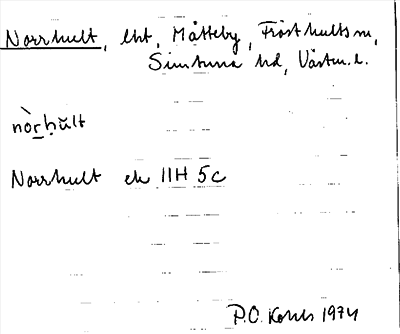 Norrhult, lht, Måtteby, Frösthults sn,
Simtuna hd, Västm.l.
nòrhŭlt
Norrhult ek 11H 5c
P.O. 1974